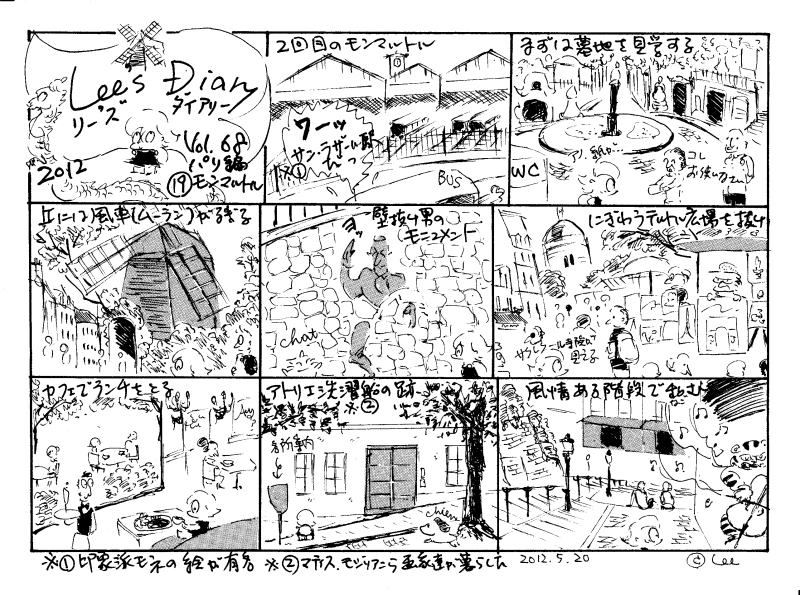 Lee's Diary
リーズ ダイアリー
2012
Vol. 68
パリ編
⑲モンマルトル
2回目のモンマルトル
ワーッ
サン・ラザール駅
だっ
※①
BUS
まずは墓地を見学する
WC
コレ
お使いカ
丘には風車(ムーラン)が残る
壁抜け男の
モニュメント
chat
にぎわうテルトル広場を抜け
サクレクール寺院が
見える
カフェでランチをとる
アトリエ洗濯船の跡
※②
名所案内
cheese
風情ある階段で
※①印象派モネの絵が有名
※②マチス、モジリアニら画家達が暮らした
2012.5.20
© Lee